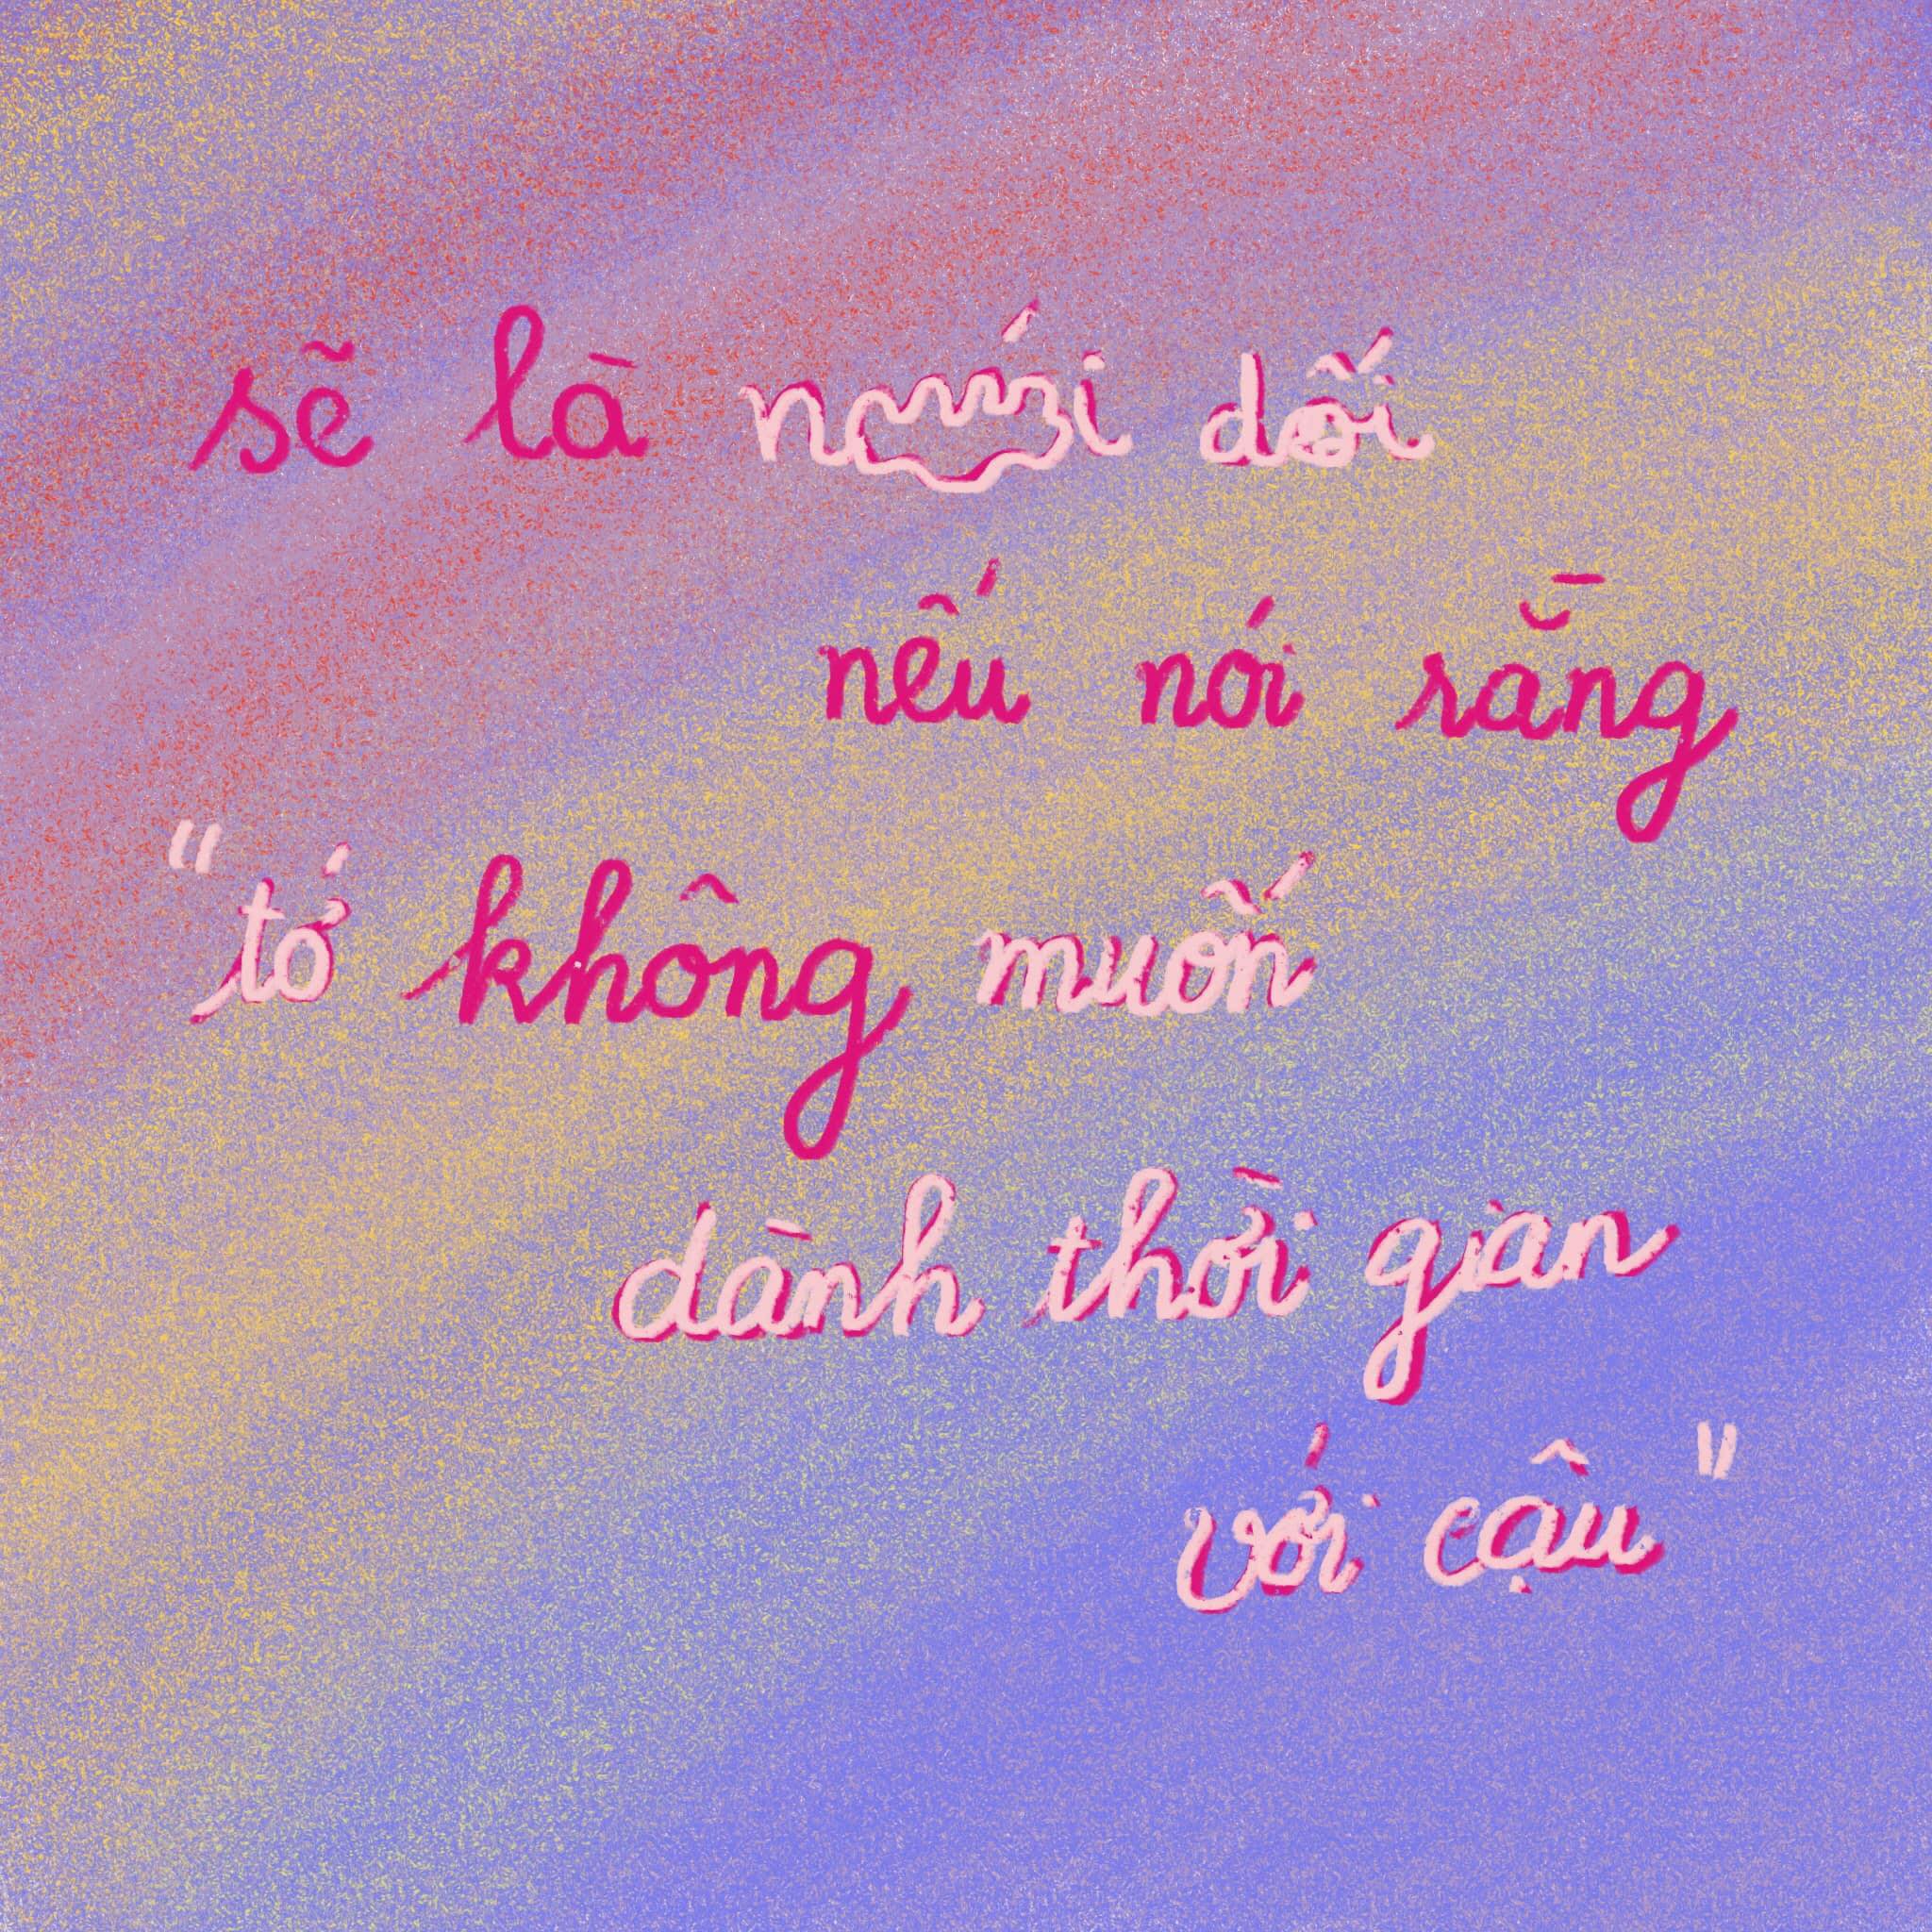 sẽ là nói dối
nếu nói rằng
"tớ không muốn
dành thời gian
với cậu"